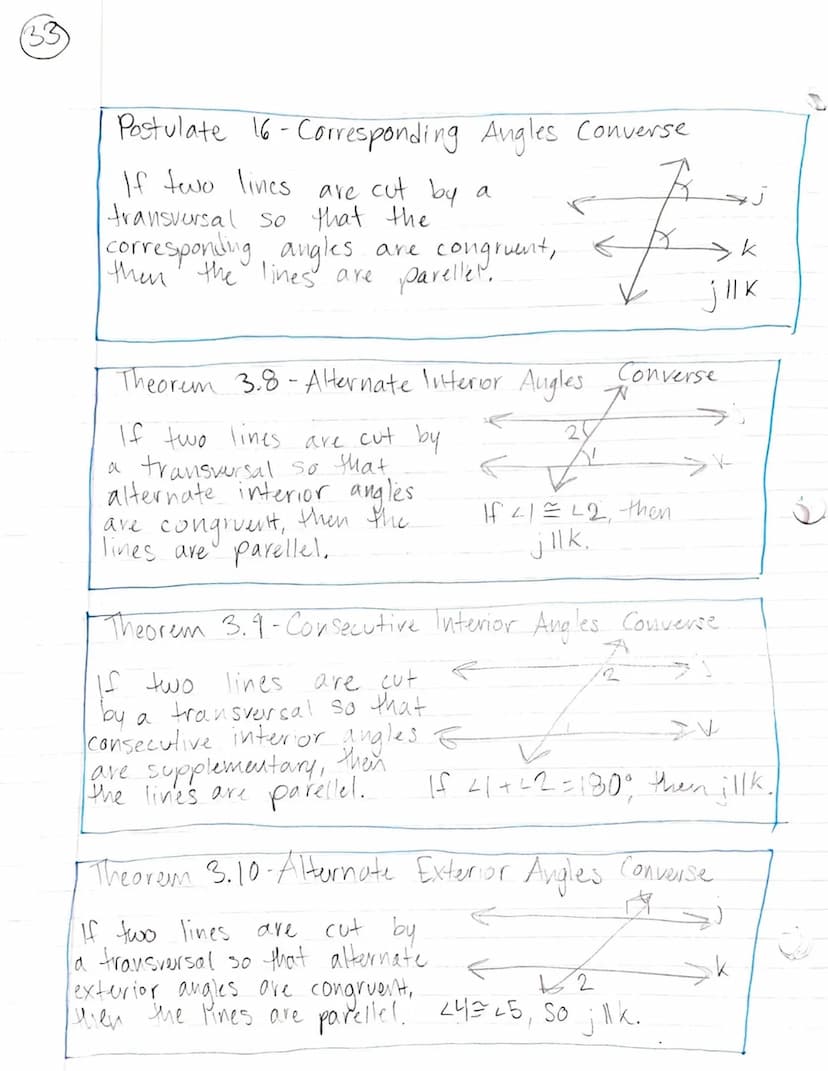 33
Postulate 16 - Corresponding Angles Converse
If two lines are cut by a
transversal so that the
corresponding angles are congruent,
then the lines are parellel.
j
k
j || k
Theorem 3.8 - Alternate Interior Angles Converse
If two lines are cut by
a transversal so that
alternate interior angles
are congruent, then the
lines are parellel.
j
2
1
k
If ∠1 ≅ ∠2, then
j || k.
Theorem 3.9 - Consecutive Interior Angles Converse
If two lines are cut
by a transversal so that
consecutive interior angles
are supplementary, then
the lines are parellel.
j
2
1
k
If ∠1 + ∠2 = 180°, then j || k.
Theorem 3.10 - Alternate Exterior Angles Converse
If two lines are cut by
a transversal so that alternate
exterior angles are congruent,
then the lines are parellel.
j
k
2
∠4 ≅ ∠5, So j || k.